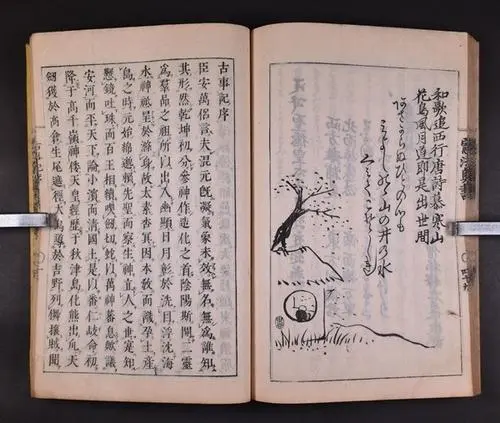 和歌追西行唐詩慕寒山
花鳥風月道即是出世間
山の井の水
古事記序
臣安萬侶言夫混元既凝氣象未效無名無爲誰知
其形然乾坤初分參神作造化之首陰陽斯開二靈
爲羣品之祖所以出入幽顯日月彰於洗目浮沈海
水神祇呈於滌身故太素杳冥因本敎而識孕土產
島之時元始綿邈頼先聖而察生神立人之世寔知
懸鏡吐珠而百王相續喫釼切蛇以萬神蕃息歟議
安河而平天下論小濱而清國土是以番仁岐命初
降于高千嶺神倭天皇經歷于秋津島化熊出爪天
釼獲於高倉生尾遮徑大烏導於吉野列儛攘賊聞